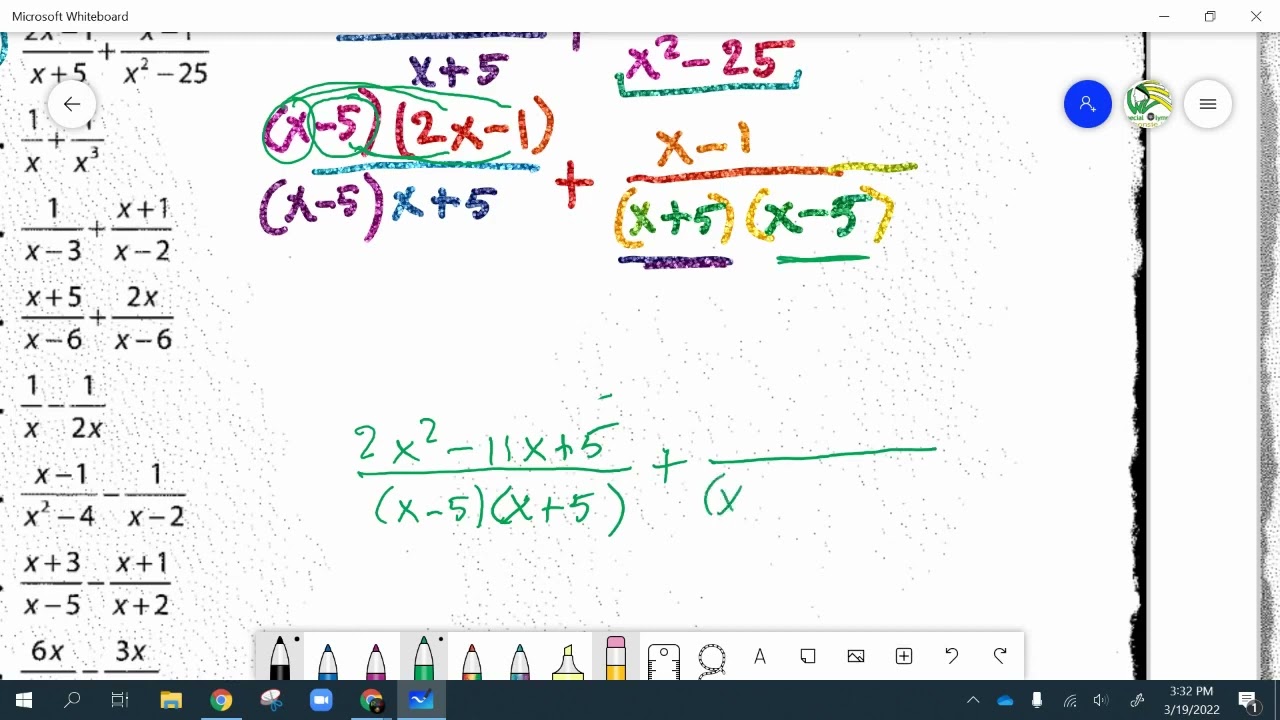 Microsoft Whiteboard
2x-1/x+5 + x-1/x² - 25
1/x + 1/x³
1/x-3 + x+1/x-2
x+5/x-6 + 2x/x-6
1/x - 1/2x
x-1/x²-4 - 1/x-2
x+3/x-5 - x+1/x+2
6x - 3x
x+5 + x²-25
(x-5)(2x-1)/(x-5)x+5 + x-1/(x+5)(x-5)
2x²-11x+5/(x-5)(x+5) + /(x
A
3:32 PM
3/19/2022
1